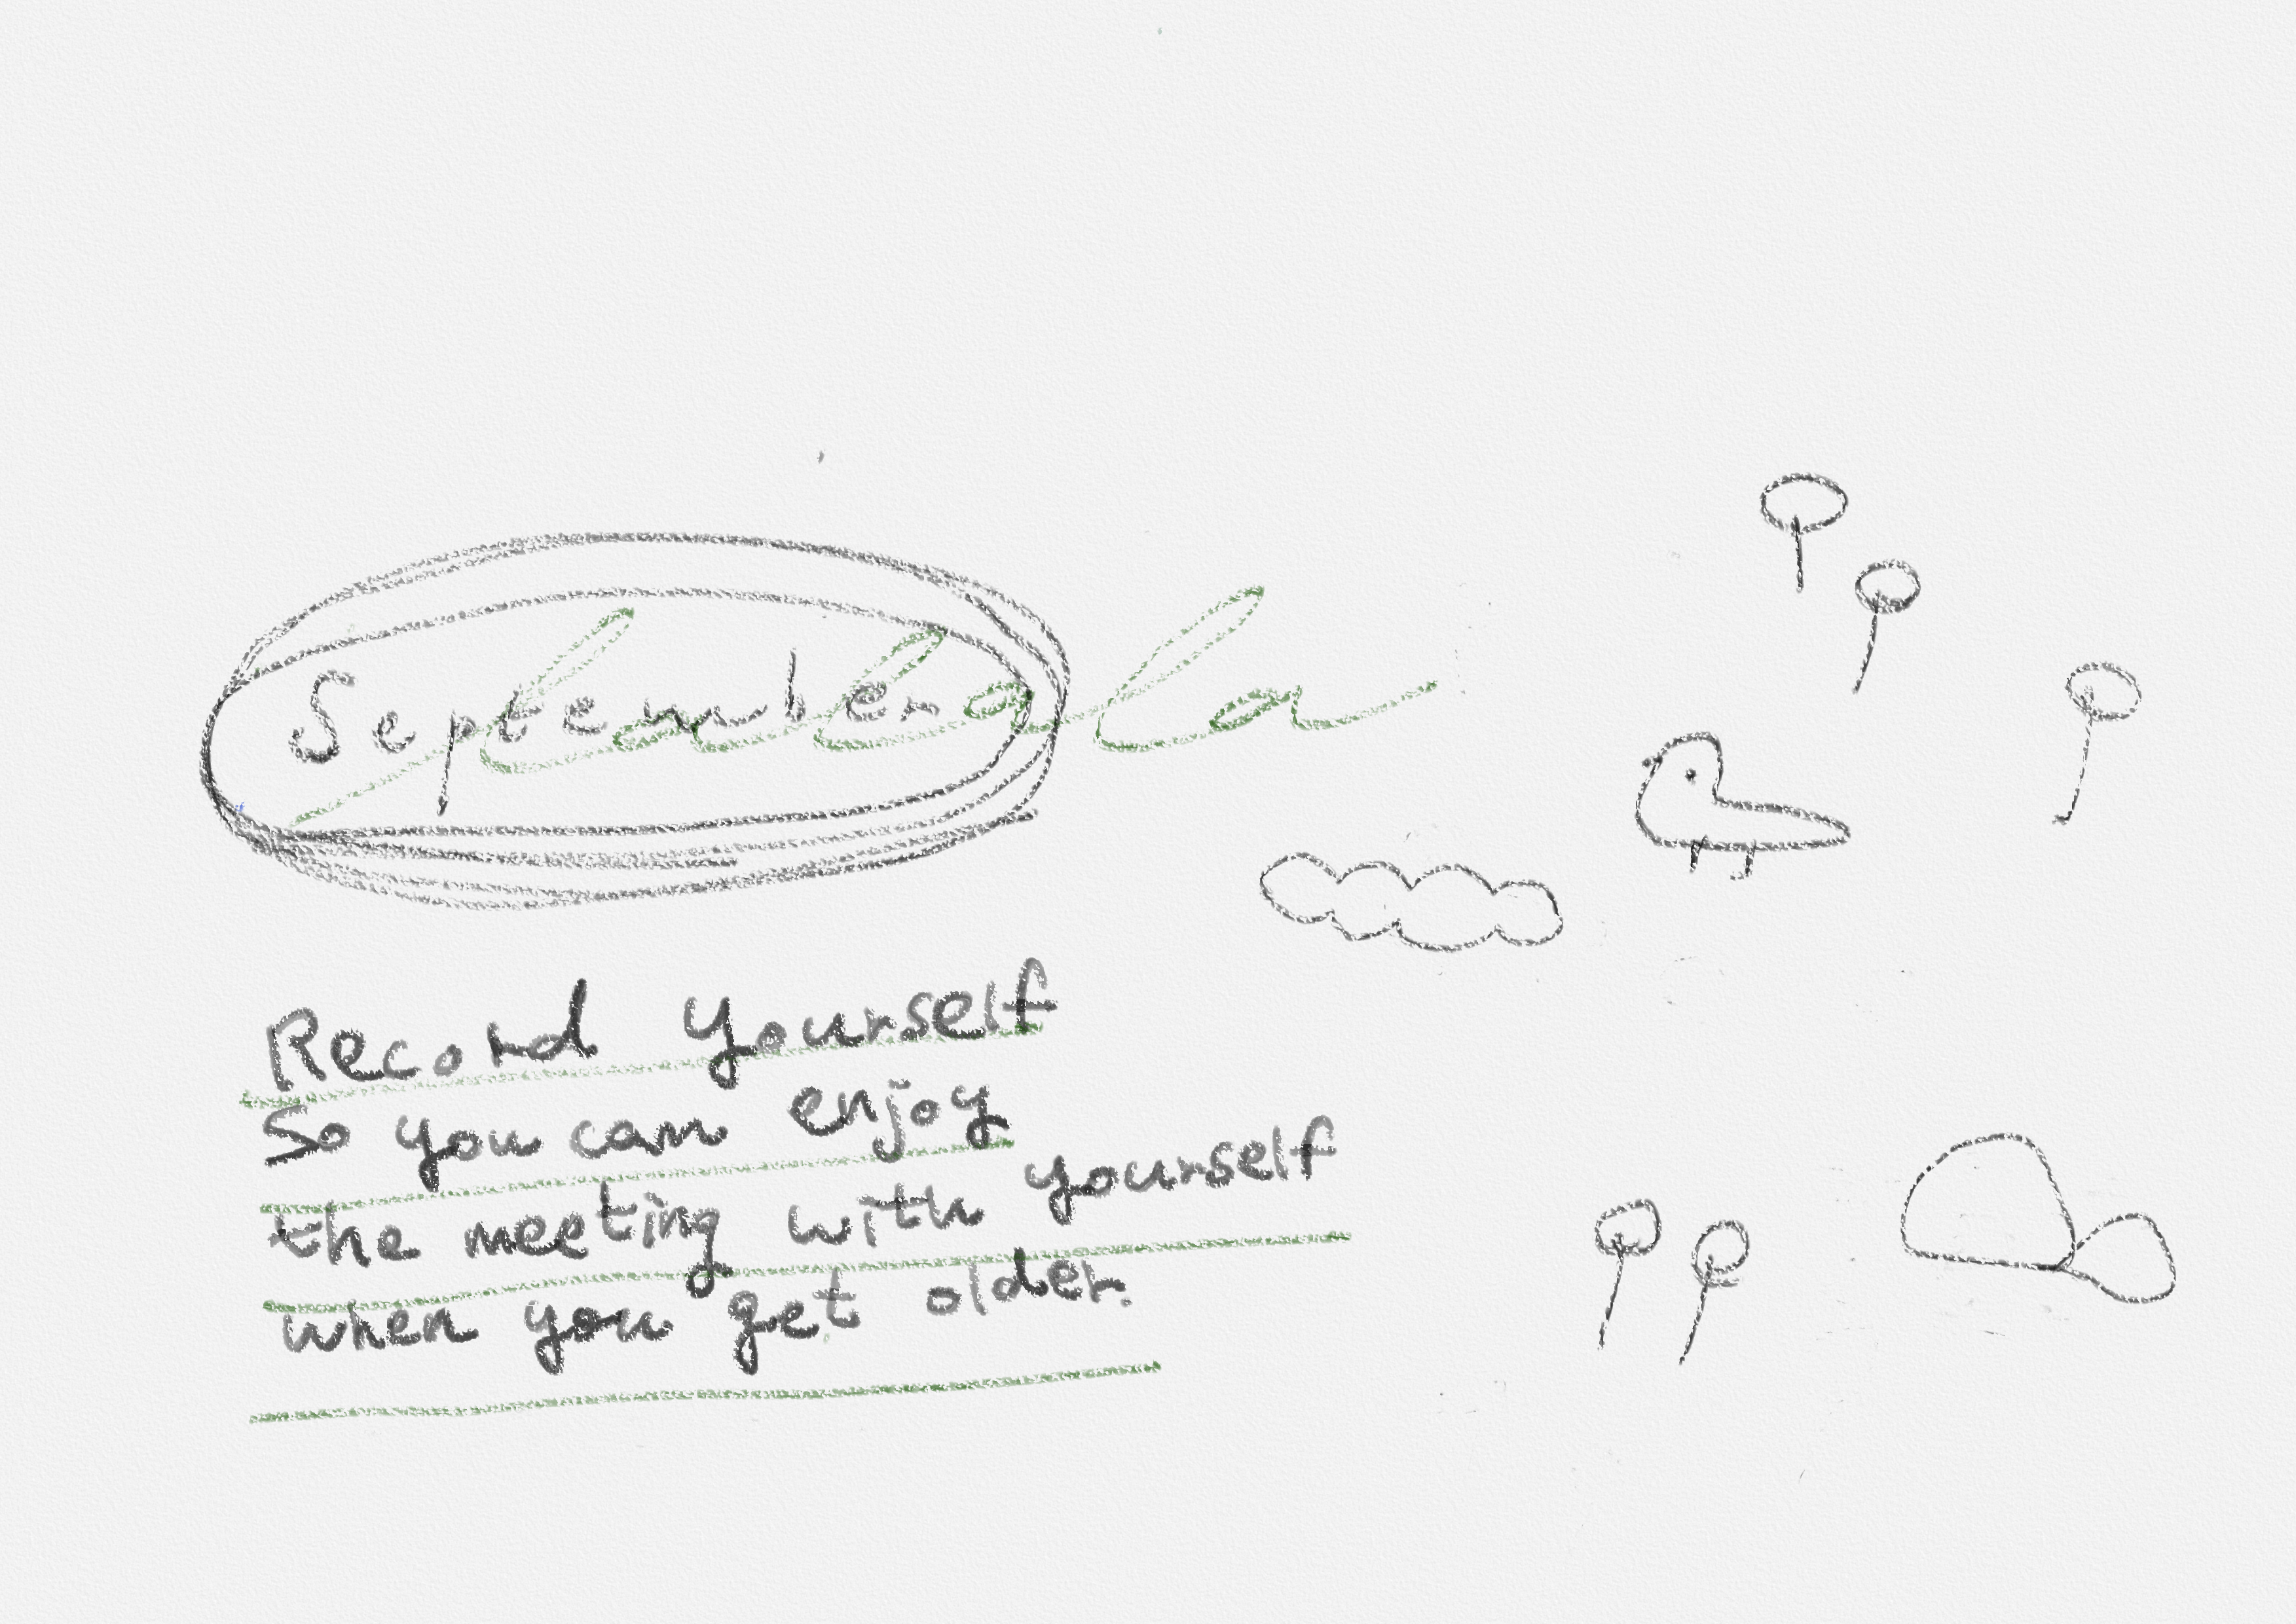 September
la la la
Record yourself
So you can enjoy
the meeting with yourself
when you get older.